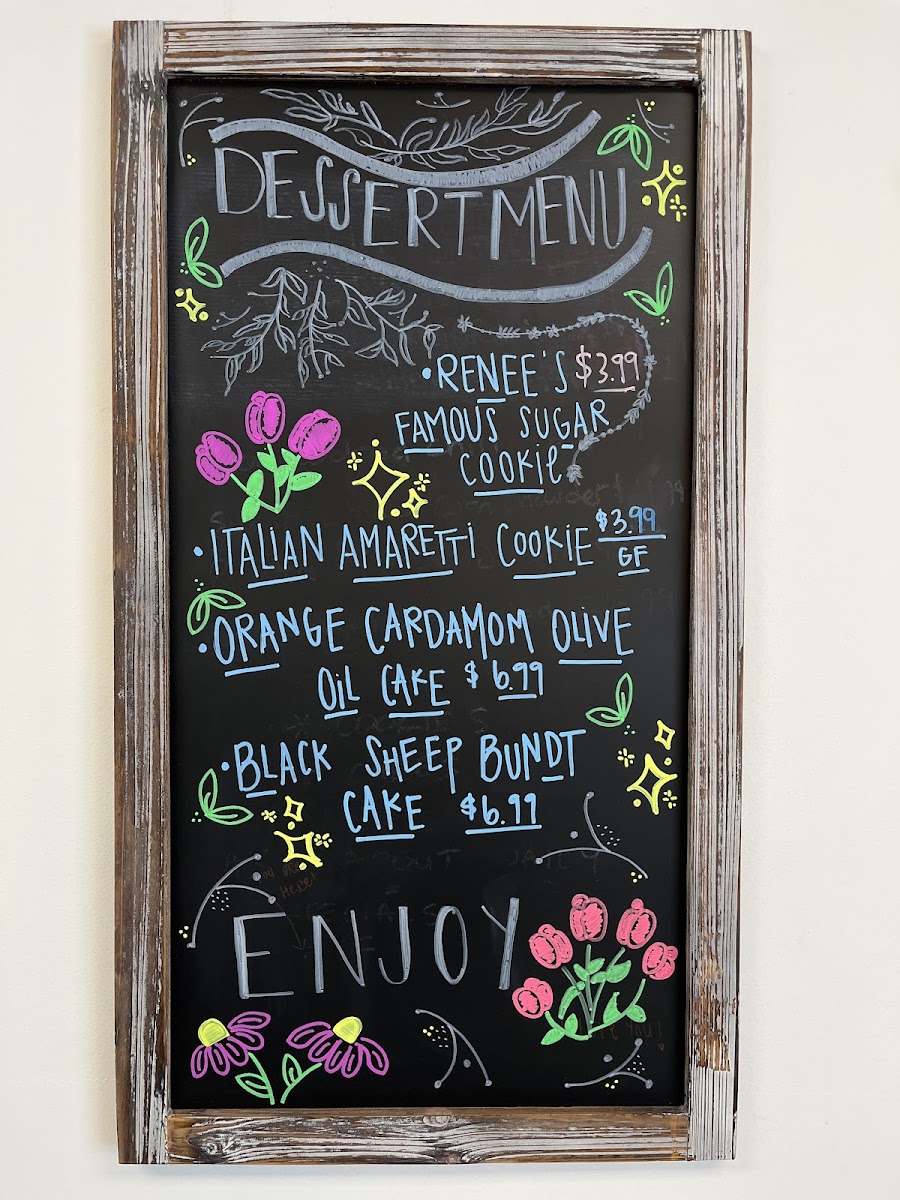 DESSERT MENU
• RENEE'S $3.99
FAMOUS SUGAR
COOKIE
• ITALIAN AMARETTI COOKIE $3.99
GF
• ORANGE CARDAMOM OLIVE
OIL CAKE $6.99
• BLACK SHEEP BUNDT
CAKE $6.99
HERE!
ENJOY